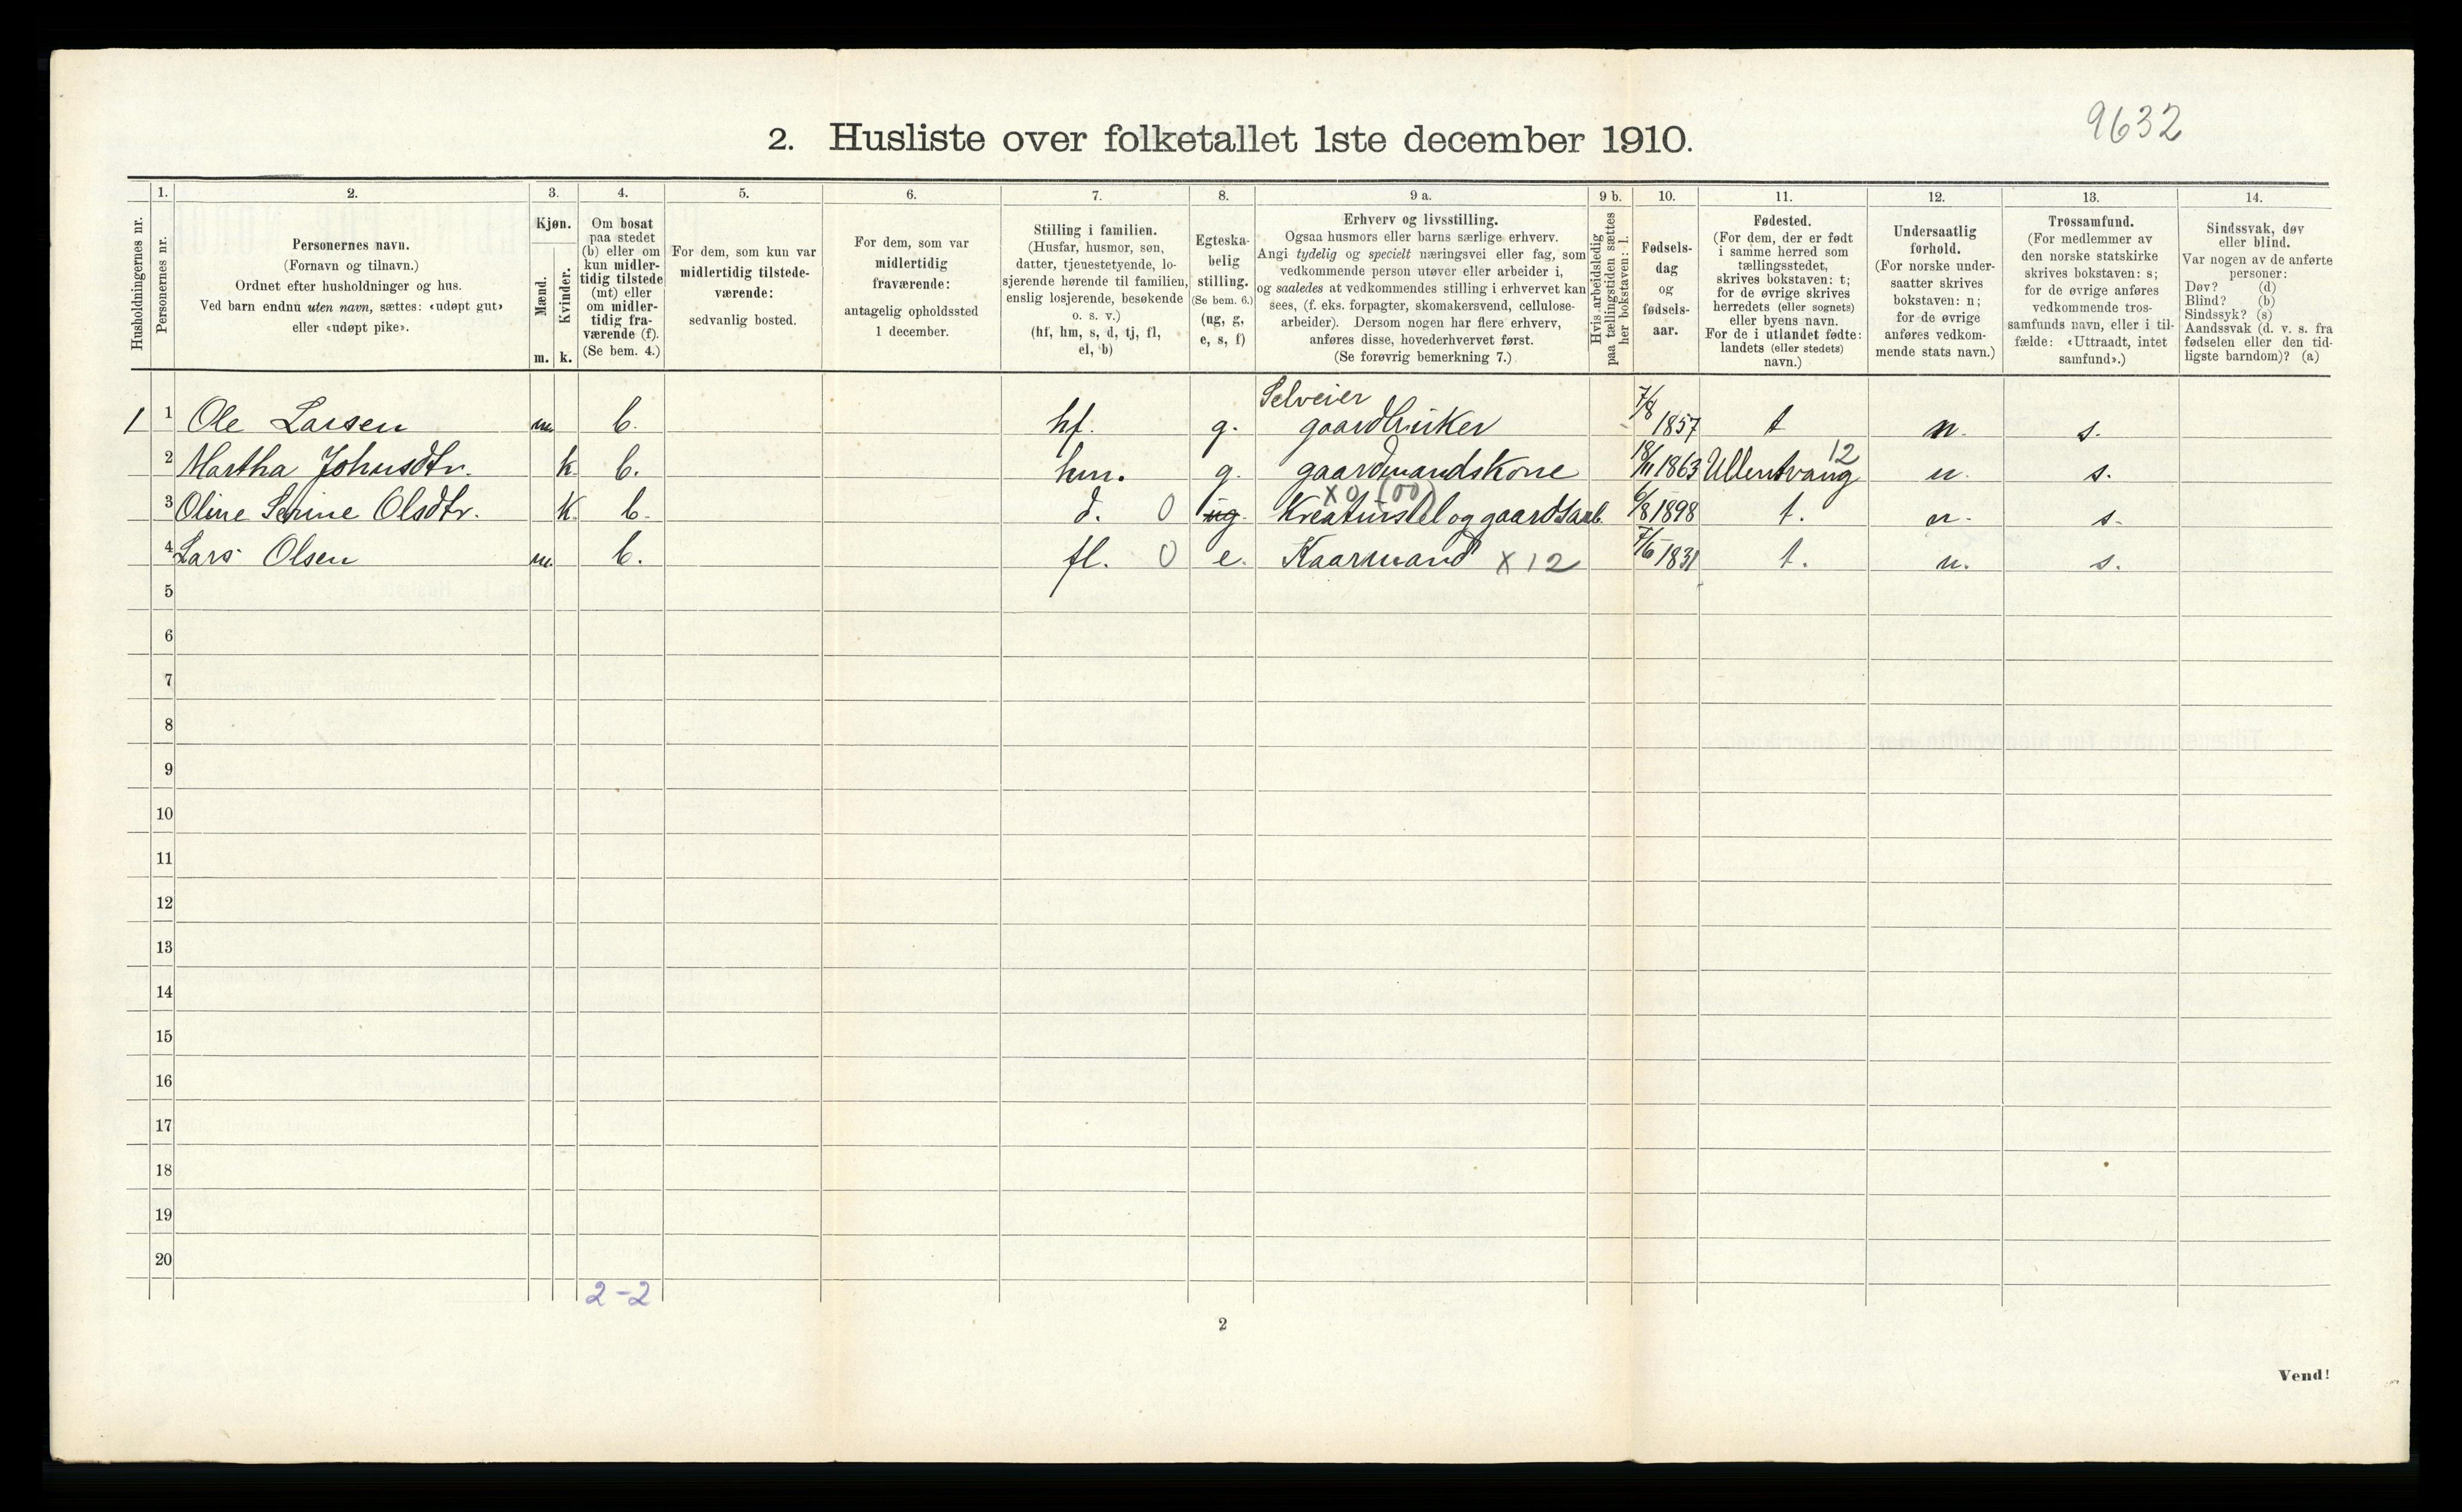 9632
2. Husliste over folketallet 1ste december 1910.
Husholdningernes nr.
1.
Personernes nr.
2.
Personernes navn.
(Fornavn og tilnavn.)
Ordnet efter husholdninger og hus.
Ved barn endnu uten navn, sættes: «udøpt gut»
eller «udøpt pike».
3.
Kjøn.
Mænd.
Kvinder.
m. k.
4.
Om bosat
paa stedet
(b) eller om
kun midler-
tidig tilstede
(mt) eller
om midler-
tidig fra-
værende (f).
(Se bem. 4.)
5.
For dem, som kun var
midlertidig tilstede-
værende:
sedvanlig bosted.
6.
For dem, som var
midlertidig
fraværende:
antagelig opholdssted
1 december.
7.
Stilling i familien.
(Husfar, husmor, søn,
datter, tjenestetyende, lo-
sjerende hørende til familien,
enslig losjerende, besøkende
o. s. v.)
(hf, hm, s, d, tj, fl,
el, b)
8.
Egteska-
belig
stilling.
(Se bem. 6.)
(ug, g,
e, s, f)
9 a.
Erhverv og livsstilling.
Ogsaa husmors eller barns særlige erhverv.
Angi tydelig og specielt næringsvei eller fag, som
vedkommende person utøver eller arbeider i,
og saaledes at vedkommendes stilling i erhvervet kan
sees, (f. eks. forpagter, skomakersvend, cellulose-
arbeider). Dersom nogen har flere erhverv,
anføres disse, hovederhvervet først.
(Se forøvrig bemerkning 7.)
9 b.
Hvis arbeidsledig
paa tællingstiden sættes
her bokstaven: l.
10.
Fødsels-
dag
og
fødsels-
aar.
11.
Fødested.
(For dem, der er født
i samme herred som
tællingsstedet,
skrives bokstaven: t;
for de øvrige skrives
herredets (eller sognets)
eller byens navn.
For de i utlandet fødte:
landets (eller stedets)
navn.)
12.
Undersaatlig
forhold.
(For norske under-
saatter skrives
bokstaven: n;
for de øvrige
anføres vedkom-
mende stats navn.)
13.
Trossamfund.
(For medlemmer av
den norske statskirke
skrives bokstaven: s;
for de øvrige anføres
vedkommende tros-
samfunds navn, eller i til-
fælde: «Uttraadt, intet
samfund».)
14.
Sindssvak, døv
eller blind.
Var nogen av de anførte
personer:
Døv? (d)
Blind? (b)
Sindssyk? (s)
Aandssvak (d. v. s. fra
fødselen eller den tid-
ligste barndom)? (a)
1 1 Ole Larsen m b. hf. g. Selveier gaardbruker 7/8 1857 t n. s.
2 Martha Johnsdtr. k b. hm. g. gaardmandskone 18/11 1863 Ullensvang 12 n. s.
3 Oline Serine Olsdtr. k b. d. 0 ug. Kreaturstel og gaardsarb. X0 (00) 6/8 1898 t. n. s.
4 Lars Olsen m. b. fl. 0 e. Kaarmand X12 7/6 1831 t. n. s.
5
6
7
8
9
10
11
12
13
14
15
16
17
18
19
20
2-2
2
Vend!